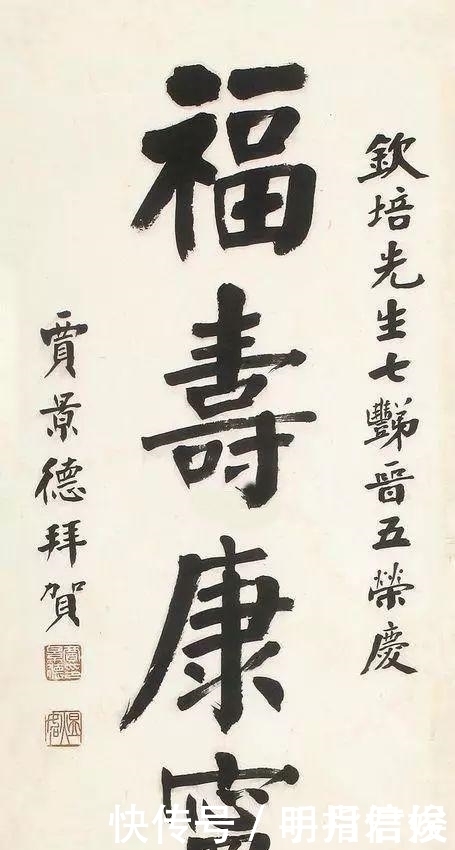 欽培先生七豑晉五榮慶
福壽康寧
賈景德拜賀
快传号 /